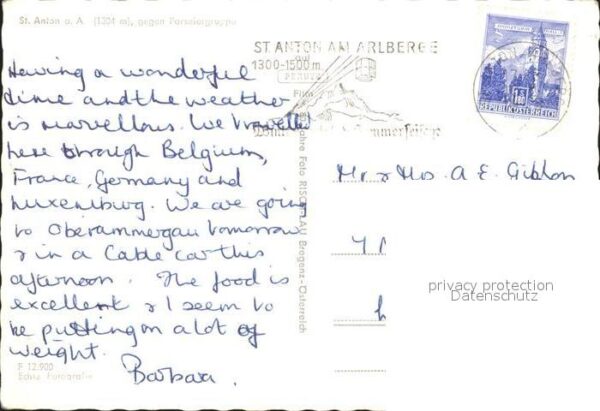 St. Anton a. A. (1304 m), gegen Parseiergruppe
Having a wonderful
time and the weather
is marvellous. We travelled
here through Belgium,
France, Germany and
Luxemburg. We are going
to Oberammergau tomorrow
& in a Cable car this
afternoon. The food is
excellent & I seem to
be putting on a lot of
weight.
Barbara.
F 12.900
Echte Fotografie
Foto RISCH-LAU Bregenz-Österreich
ST. ANTON AM ARLBERG
1300-1500 m
REPUBLIK ÖSTERREICH
Mr & Mrs. A E. Gibbon
privacy protection
Datenschutz